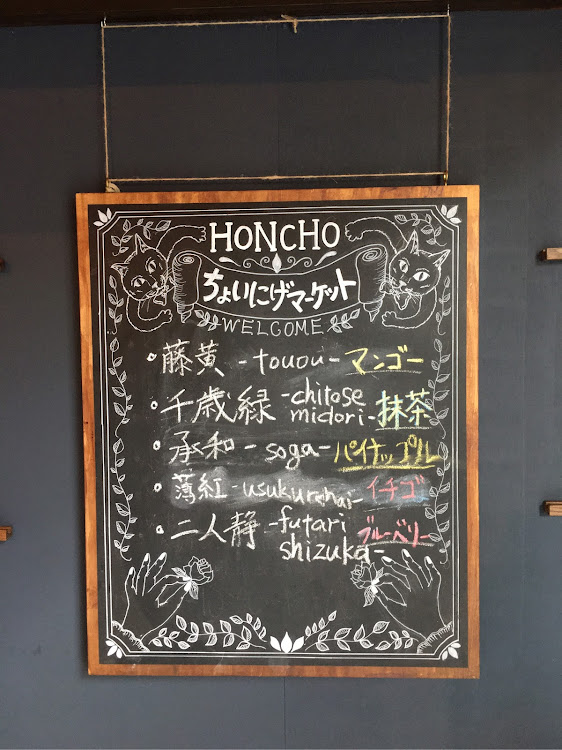 HONCHO
ちょいにげマーケット
WELCOME
藤黄 - touou - マンゴー
千歳緑 - chitose midori - 抹茶
承和 - soga - パイナップル
薄紅 - usukurenai - イチゴ
二人静 - futari shizuka - ブルーベリー